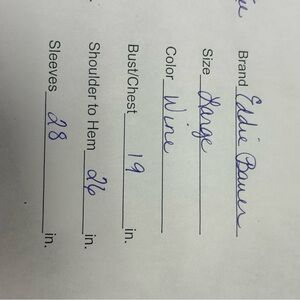 Brand Eddie Bauer
Size Large
Color Wine
Bust/Chest 19 in.
Shoulder to Hem 26 in.
Sleeves 28 in.